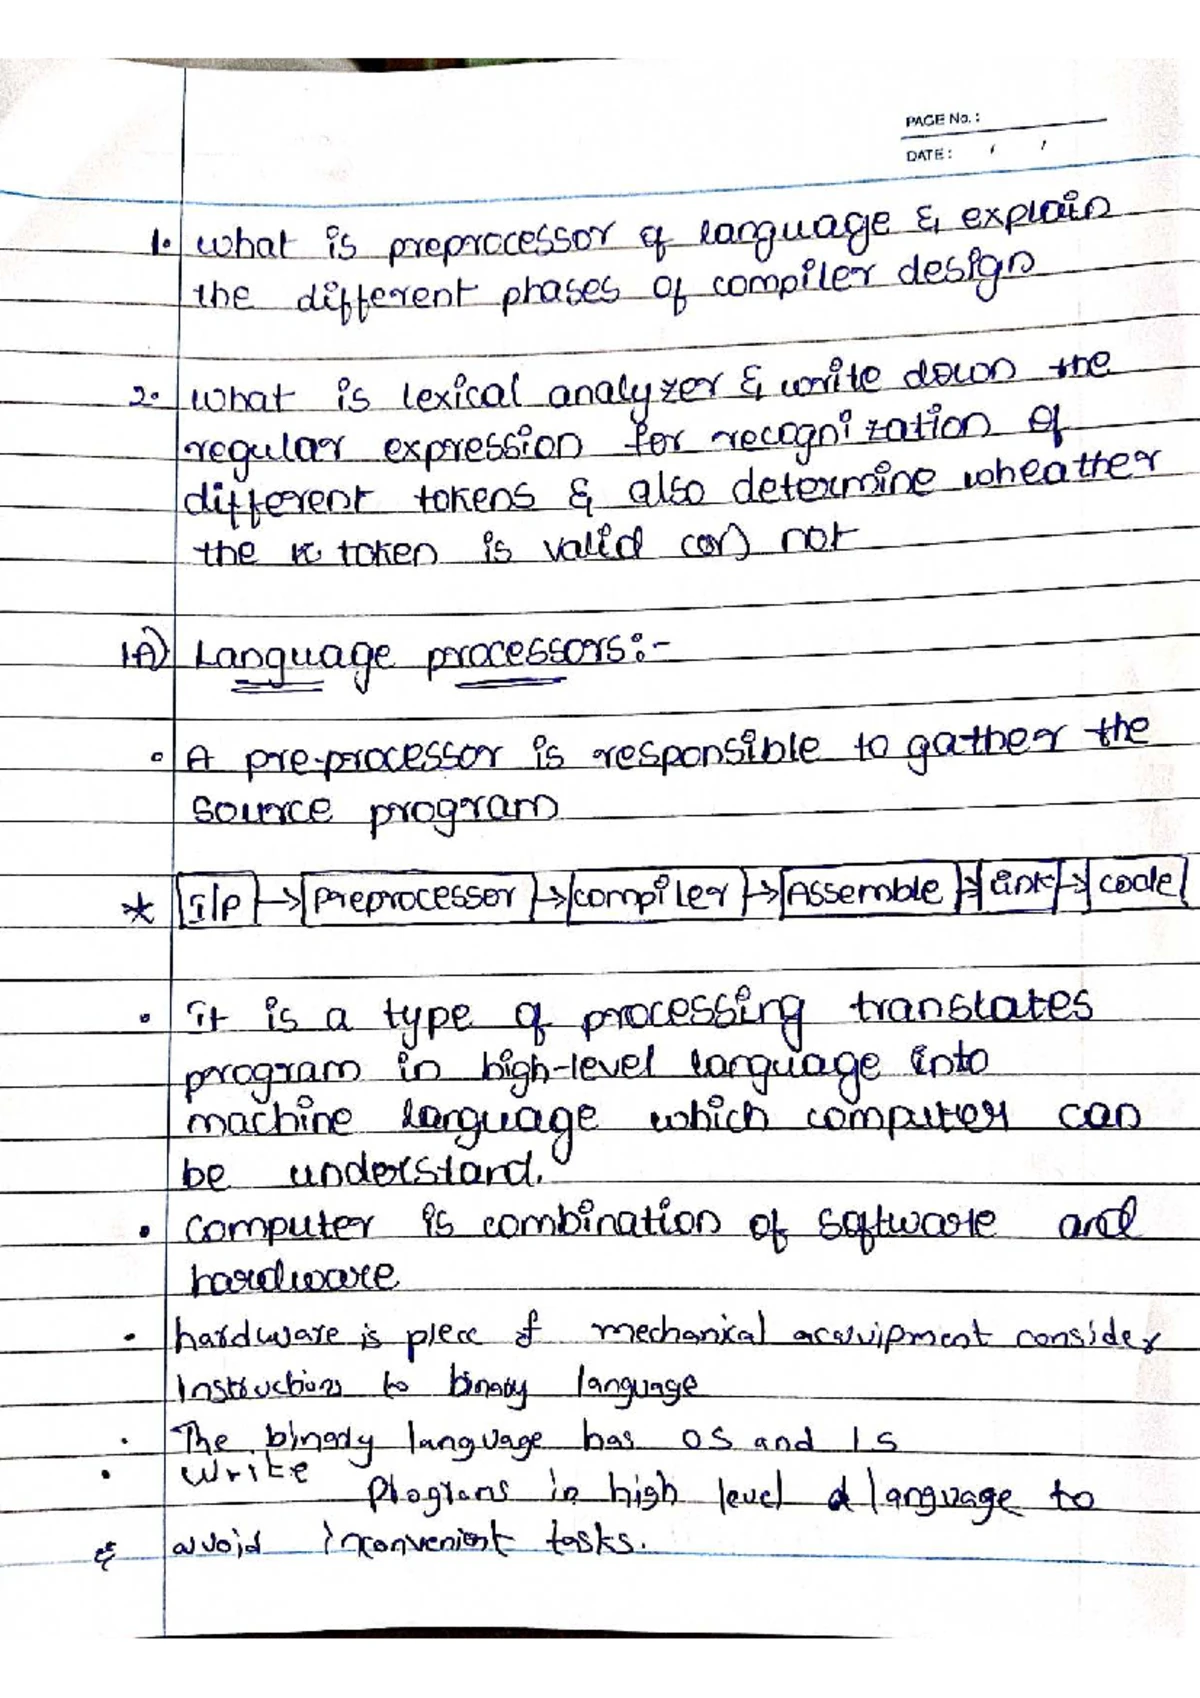 PAGE No. :
DATE : / /
1. what is preprocessor of language & explain
the different phases of compiler design
2. what is lexical analyzer & write down the
regular expression for recognization of
different tokens & also determine wheather
the token is valid (or) not
1A) Language processors:-
• A pre-processor is responsible to gather the
source program
* I/P → preprocessor → compiler → Assemble → link → code
• it is a type of processing translates
program in high-level language into
machine language which computer can
be understand.
• computer is combination of software and
hardware
• hardware is piece of mechanical consider
Instructions to binary language
• The binary language has 0S and 1S
• write
programs in high level language to
& avoid inconvenient tasks.